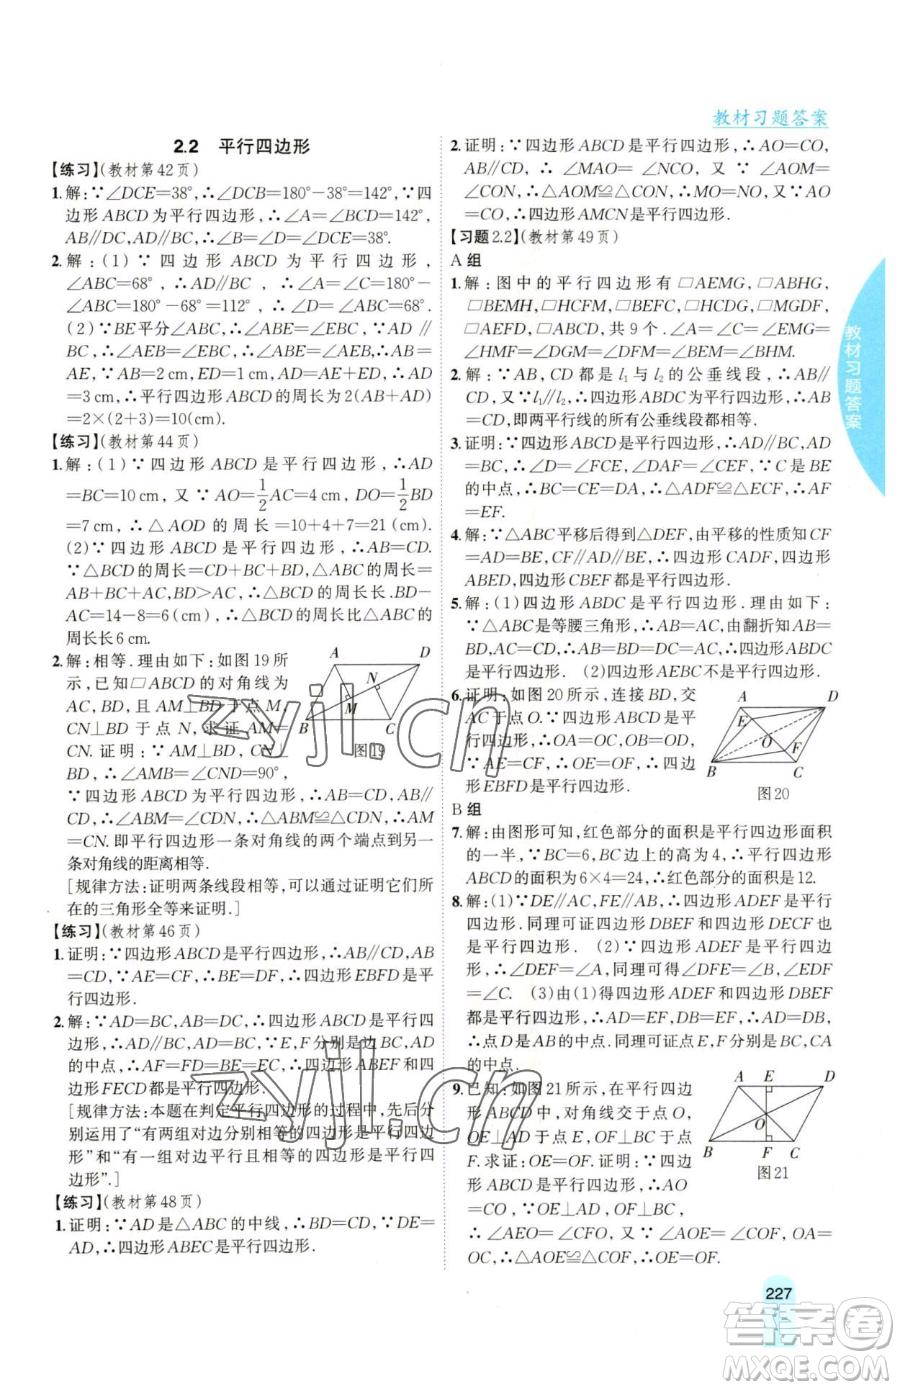 教材习题答案
2.2 平行四边形
【练习】(教材第42页)
1.解:∵∠DCE=38°,∴∠DCB=180°-38°=142°,∵四
边形ABCD为平行四边形,∴∠A=∠DCB=142°,
AB//DC,AD//BC,∴∠B=∠DCE=38°.
2.解:(1)∵四边形ABCD为平行四边形,
∠ABC=68°,∴AD//BC,∴∠ADC=∠ABC=68°,
∴∠A=180°-68°=112°,∴∠D=68°.
(2)∵BE平分∠ABC,∴∠ABE=∠EBC,∵AD//
BC,∴∠AEB=∠EBC,∴∠AEB=∠ABE,∴AB=
AE.∵AE=2 cm,ED=1 cm,∴AD=AE+ED=AD
=3 cm,∴平行四边形ABCD的周长为2(AB+AD)
=2×(2+3)=10(cm).
【练习】(教材第44页)
1.解:(1)∵四边形ABCD是平行四边形,∴AD
=BC=10 cm,又∵AO=1/2AC=4 cm,DO=1/2BD
=7 cm,∴△AOD的周长=10+4+7=21(cm).
(2)∵四边形ABCD是平行四边形,∴AB=CD.
∵△BCD的周长=CD+BC+BD,△ABC的周长=
AB+BC+AC,BD>AC,∴△BCD的周长-△ABC的周长=BD-
AC=14-8=6(cm),∴△BCD的周长比△ABC的
周长长6 cm.
2.解:相等.理由如下:如图19所
示,已知□ABCD的对角线为
AC,BD,且AM⊥BD于点M,
CN⊥BD于点N,求证AM=
CN.证明:∵AM⊥BD,CN⊥
BD,∴∠AMB=∠CND=90°,
∵四边形ABCD是平行四边形,∴AB//CD,AB=
CD,∴∠ABM=∠CDN,∴△ABM≌△CDN,∴AM
=CN.即平行四边形一条对角线的两个端点到另一
条对角线的距离相等.
[规律方法:证明两条线段相等,可通过证明它们所
在的三角形全等来证明.]
A
D
N
M
B
C
图19
【练习】(教材第46页)
1.证明:∵四边形ABCD是平行四边形,∴AB//CD,AB
=CD,∵AE=CF,∴BE=DF,∴四边形EBFD是平
行四边形.
2.解:∵AD=BC,AB=DC,∴四边形ABCD是平行四
边形,∴AD//BC,AD=BC.∵E,F分别是边BC,AD
的中点,∴AF=FD=BE=EC,∴四边形ABEF和四
边形FECD都是平行四边形.
[规律方法:本题在判定平行四边形的过程中,先后分
别运用了“有两组对边分别相等的四边形是平行四边
形”和“有一组对边平行且相等的四边形是平行四
边形”.]
【练习】(教材第48页)
1.证明:∵AD是△ABC的中线,∴BD=CD,∵DE=
AD,∴四边形ABEC是平行四边形.
2.证明:∵四边形ABCD是平行四边形,∴AO=CO,
AB//CD,∴∠MAO=∠NCO,又∵∠AOM=
∠CON,∴△AOM≌△CON,∴MO=NO,又∵AO
=CO,∴四边形AMCN是平行四边形.
【习题2.2】(教材第49页)
A组
1.解:图中的平行四边形有□AEMG,□ABHG,
□BEMH,□HCFM,□BEFC,□HCDG,□MGDF,
□AEFD,□ABCD,共9个.∴∠A=∠EMG=
∠HMF=∠C,∠D=∠EMH,∠B=∠GMF,∠AEM=∠BHM.
2.解:AB,CD都是l₁与l₂的公垂线段,∴AB//CD,
又∵l₁//l₂,∴四边形ABDC为平行四边形,∴AB=
CD,即两平行线的所有公垂线段都相等.
3.证明:∵四边形ABCD是平行四边形,∴AD//BC,AD=
BC,∴∠D=∠FCE,∠DAF=∠CEF,又∵C是BE
的中点,∴BC=CE=DA,∴△ADF≌△ECF,∴AF
=EF.
4.解:∵△ABC平移后得到△DEF,由平移的性质知CF
=AD=BE,CF//AD//BE,∴四边形CADF,四边形
ABED,四边形CBEF都是平行四边形.
5.解:(1)四边形ABDC是平行四边形.理由如下:
∵△ABC是等腰三角形,∴AB=AC,由翻折知AB=
BD,AC=CD,∴AB=CD,AC=BD,∴四边形ABDC
是平行四边形.(2)四边形AEBC不是平行四边形.
6.证明:如图20所示,连接BD,交
AC于点O.∵四边形ABCD是平
行四边形,∴OA=OC,OB=OD.
∵AE=CF,∴OE=OF,∴四边
形EBFD是平行四边形.
A
D
E
O
F
B
C
图20
B组
7.解:由图形可知,红色部分的面积是平行四边形面积
的一半,∵BC=6,BC边上的高为4,∴平行四边形
ABCD的面积为6×4=24,∴红色部分的面积是12.
8.解:(1)∵DE//AC,FE//AB,∴四边形ADEF是平行
四边形.同理可得四边形DBEF和四边形DECF也
是平行四边形.(2)∵四边形ADEF是平行四边形,
∴∠DEF=∠A,同理可得∠DFE=∠B,∠EDF
=∠C.(3)由(1)得四边形ADEF和四边形DBEF
都是平行四边形,∴AD=EF,DB=EF,∴AD=DB,
∴点D是AB的中点.同理可得点E,F分别是BC,CA
的中点.
9.已知:如图21所示,在平行四边
形ABCD中,对角线交于点O,
OE⊥AD于点E,OF⊥BC于点
F.求证:OE=OF.证明:∵四边
形ABCD是平行四边形,∴AD//
BC,∵OE⊥AD,OF⊥BC,
∴∠AEO=∠CFO,又∵∠AOE=∠COF,OA=
OC,∴△AOE≌△COF,∴OE=OF.
A
E
D
O
B
F
C
图21
教材习题答案
227
zyjl.cn
zyjl.cn
答案圈
MXQE.COM